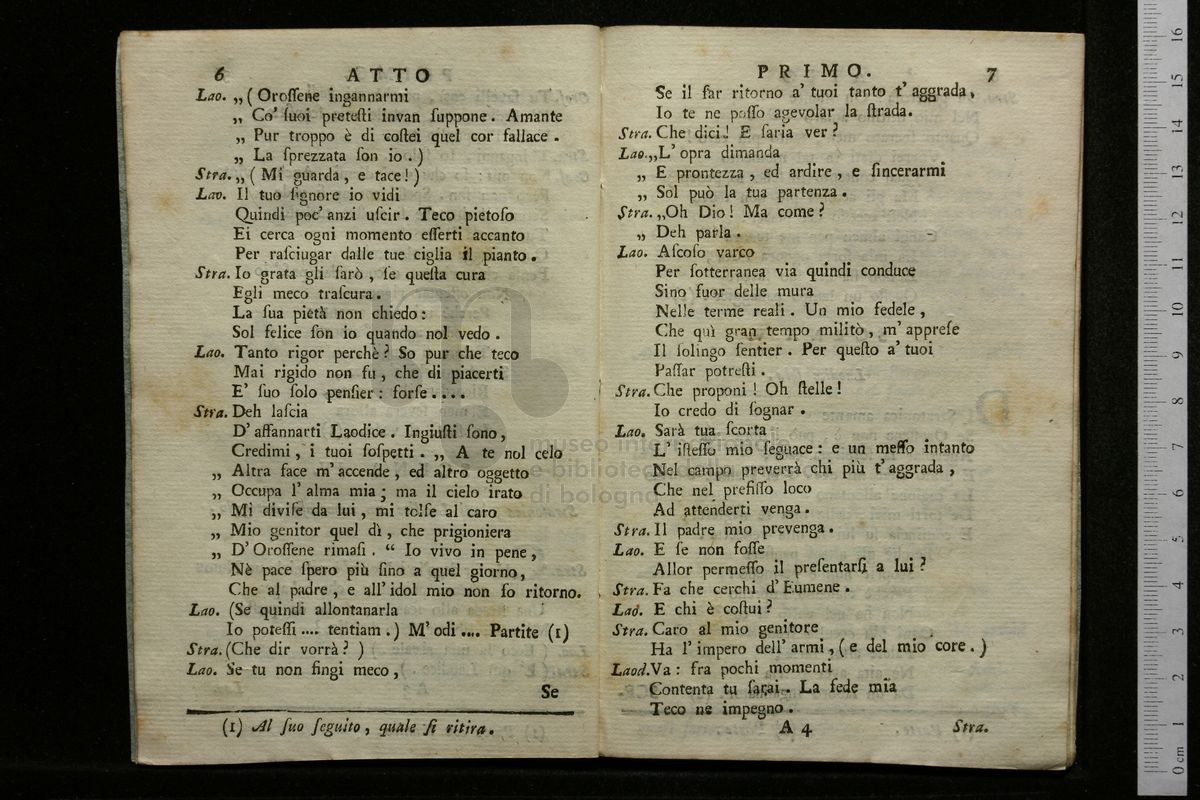 6 ATTO
Lao. „ ( Oroſſene ingannarmi
„ Co' ſuoi preteſti invan ſuppone. Amante
„ Pur troppo è di coſtei quel cor fallace.
„ La ſprezzata ſon io. )
Stra. „ ( Mi guarda, e tace! )
Lao. Il tuo ſignore io vidi
Quindi poc' anzi uſcir. Teco pietoſo
Ei cerca ogni momento eſſerti accanto
Per raſciugar dalle tue ciglia il pianto.
Stra. Io grata gli ſarò, ſe queſta cura
Egli meco traſcura.
La ſua pietà non chiedo:
Sol felice ſon io quando nol vedo.
Lao. Tanto rigor perchè? So pur che teco
Mai rigido non fu, che di piacerti
E' ſuo ſolo penſier: forſe....
Stra. Deh laſcia
D' affannarti Laodice. Ingiuſti ſono,
Credimi, i tuoi ſoſpetti. „ A te nol celo
„ Altra face m' accende, ed altro oggetto
„ Occupa l' alma mia; ma il cielo irato
„ Mi diviſe da lui, mi tolſe al caro
„ Mio genitor quel dì, che prigioniera
„ D' Oroſſene rimaſi. “ Io vivo in pene,
Nè pace ſpero più ſino a quel giorno,
Che al padre, e all' idol mio non fo ritorno.
Lao. (Se quindi allontanarla
Io poteſſi.... tentiam.) M' odi.... Partite (1)
Stra. (Che dir vorrà? )
Lao. Se tu non fingi meco,
Se
(1) Al ſuo ſeguito, quale ſi ritira.
PRIMO. 7
Se il far ritorno a' tuoi tanto t' aggrada,
Io te ne poſſo agevolar la ſtrada.
Stra. Che dici! E ſaria ver?
Lao. „ L' opra dimanda
„ E prontezza, ed ardire, e ſincerarmi
„ Sol può la tua partenza.
Stra. „ Oh Dio! Ma come?
„ Deh parla.
Lao. Aſcoſo varco
Per ſotterranea via quindi conduce
Sino fuor delle mura
Nelle terme reali. Un mio fedele,
Che quì gran tempo militò, m' appreſe
Il ſolingo ſentier. Per queſto a' tuoi
Paſſar potreſti.
Stra. Che proponi! Oh ſtelle!
Io credo di ſognar.
Lao. Sarà tua ſcorta
L' iſteſſo mio ſeguace: e un meſſo intanto
Nel campo preverrà chi più t' aggrada,
Che nel prefiſſo loco
Ad attenderti venga.
Stra. Il padre mio prevenga.
Lao. E ſe non foſſe
Allor permeſſo il preſentarſi a lui?
Stra. Fa che cerchi d' Eumene.
Lao. E chi è coſtui?
Stra. Caro al mio genitore
Ha l' impero dell' armi, ( e del mio core. )
Laod. Va: fra pochi momenti
Contenta tu ſarai. La fede mia
Teco ne impegno.
A 4 Stra.
museo internazionale
e biblioteca
di bologna
0 cm 1 2 3 4 5 6 7 8 9 10 11 12 13 14 15 16